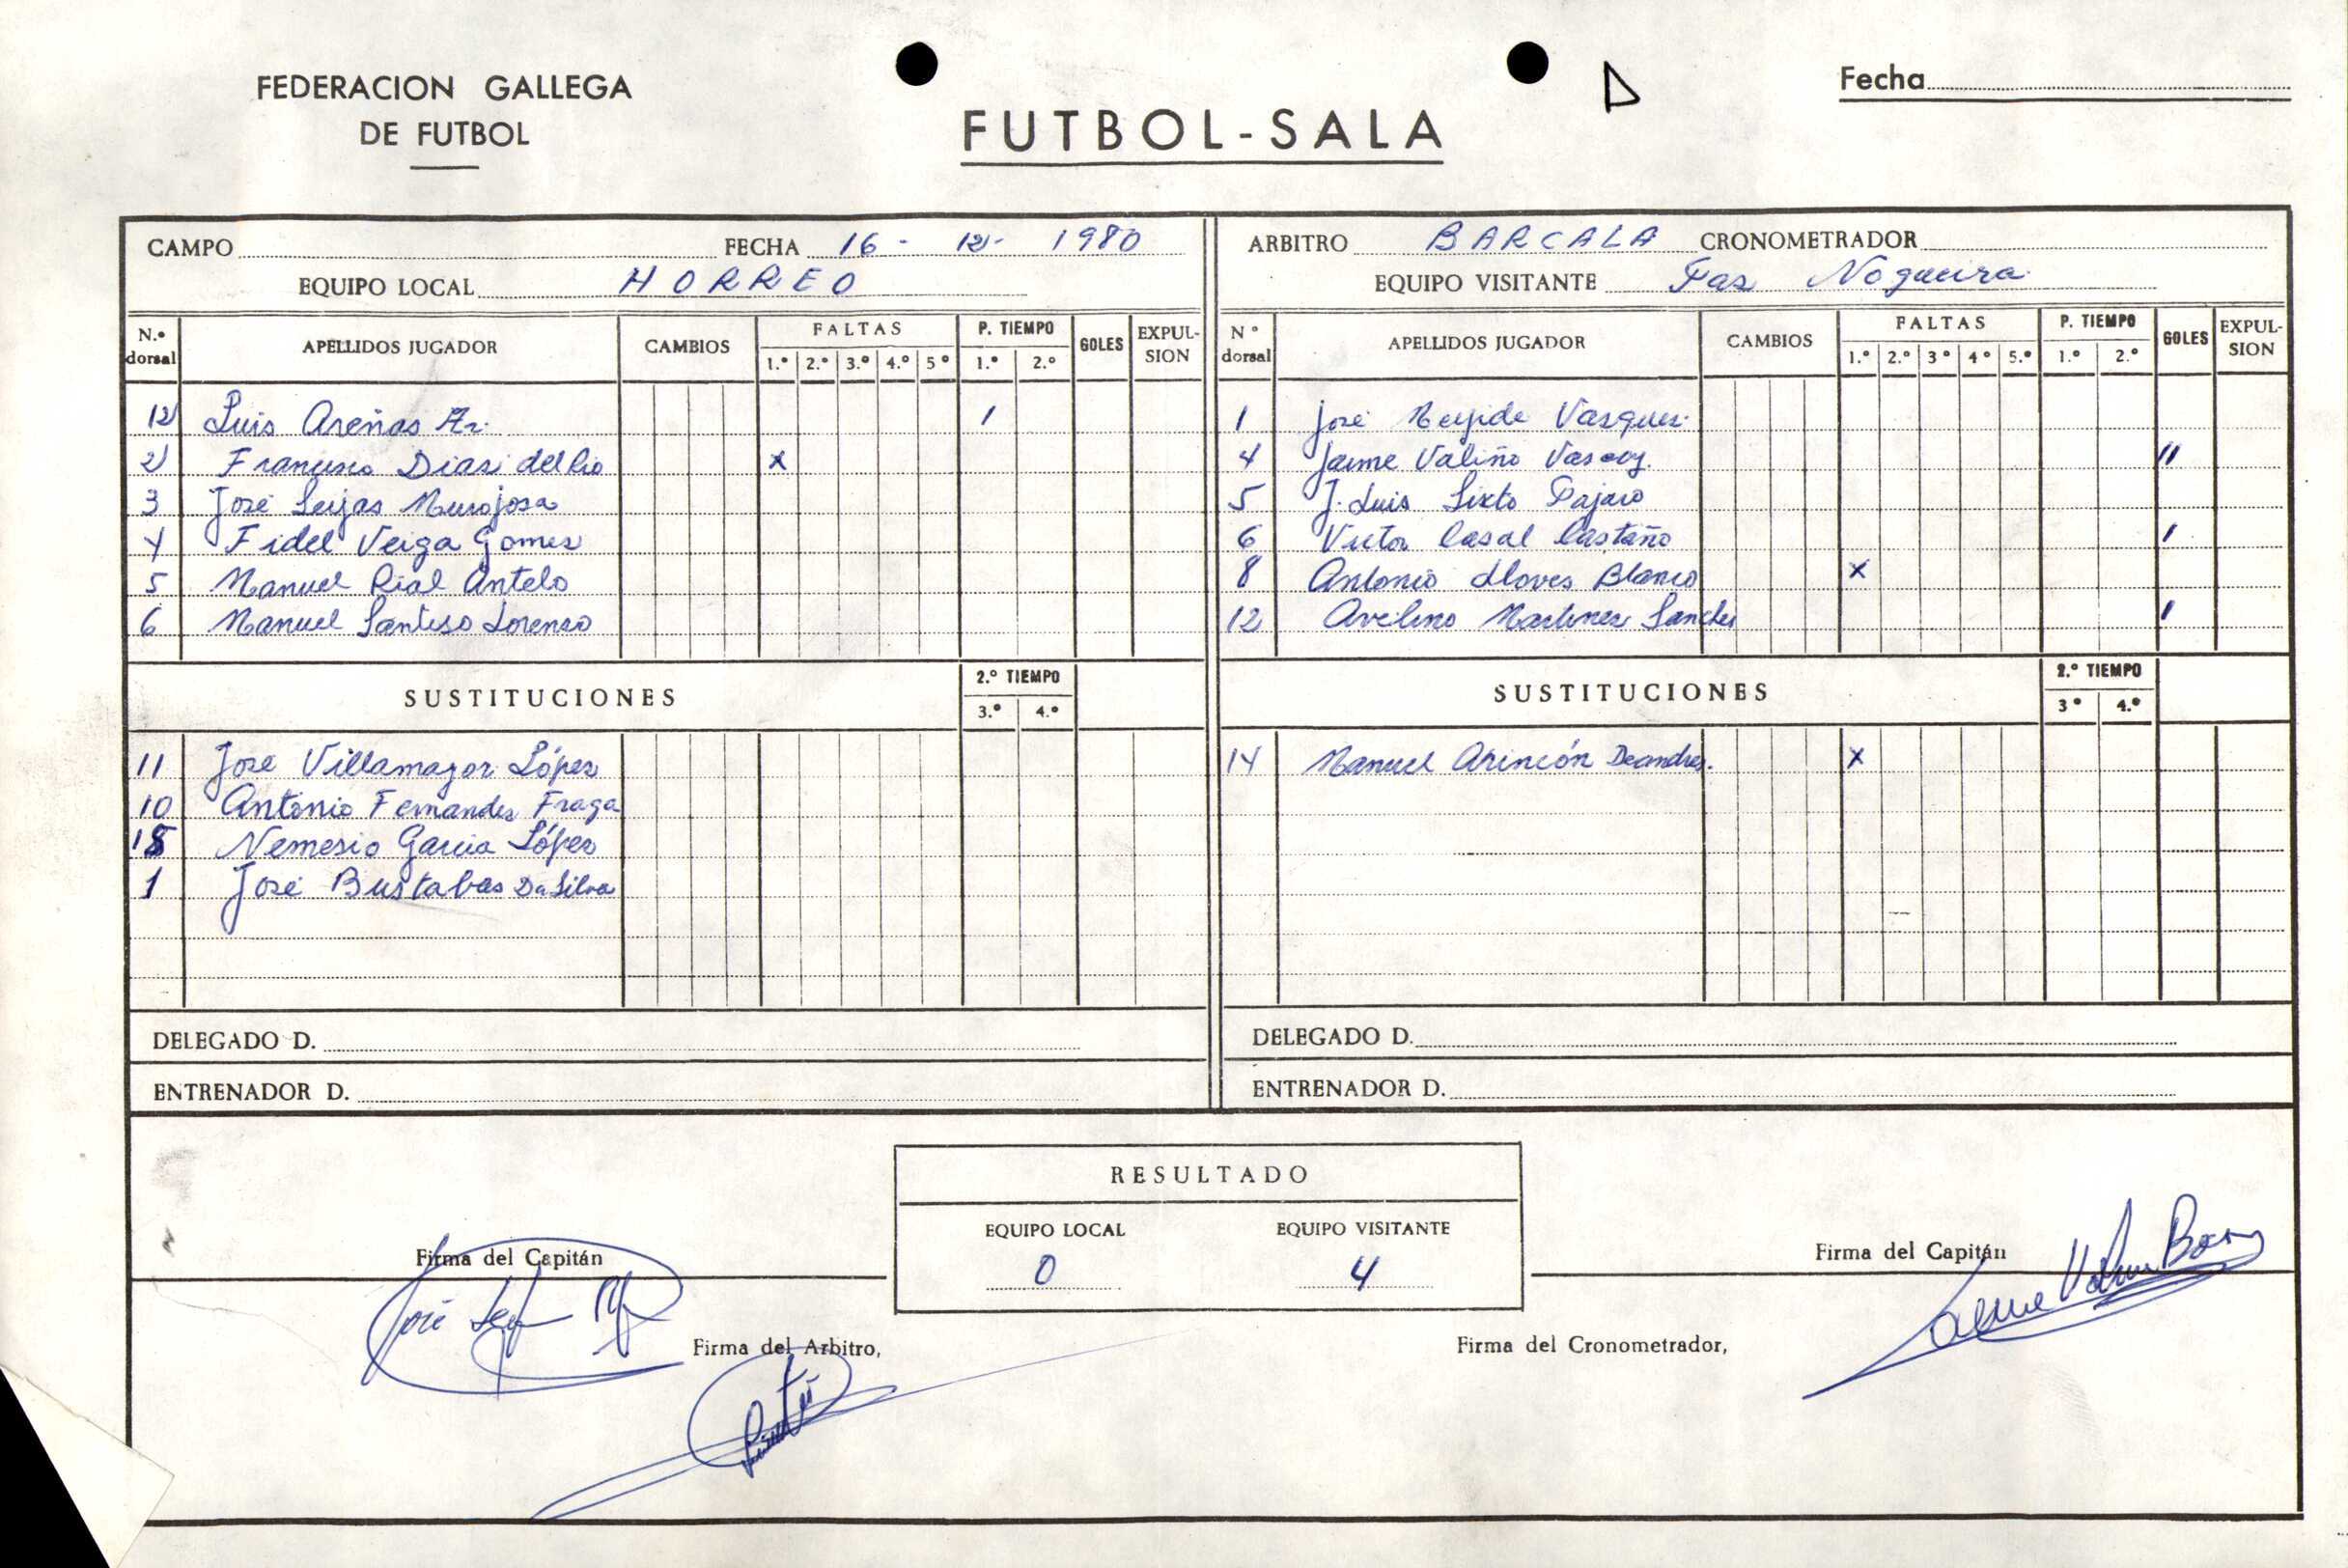 FEDERACION GALLEGA
DE FUTBOL
FUTBOL-SALA
Fecha
CAMPO FECHA 16 - 12 - 1980
EQUIPO LOCAL HORREO
N.º dorsal APELLIDOS JUGADOR CAMBIOS FALTAS 1.º 2.º 3.º 4.º 5º P. TIEMPO 1.º 2.º GOLES EXPULSION
12 Luis Areñas Az. 1
2 Francisco Dias del Rio x
3 José Seijas Murojosa
4 Fidel Veiga Gomes
5 Manuel Rial Antelo
6 Manuel Santiso Lorenzo
SUSTITUCIONES 2.º TIEMPO 3.º 4.º
11 José Villamayor López
10 Antonio Fernandez Fraga
Nemesio Garcia López
1 José Bustabas Da Silva
DELEGADO D.
ENTRENADOR D.
ARBITRO BARCALA CRONOMETRADOR
EQUIPO VISITANTE Nogueira
N º dorsal APELLIDOS JUGADOR CAMBIOS FALTAS 1.º 2.º 3 º 4 º 5.º P. TIEMPO 1.º 2.º GOLES EXPULSION
1 José Vasques
4 Jaime Valiño 11
5 J. Luis Sixto Pajaro
6 Victor Casal Castaño 1
8 Antonio Lloves Blanco x
12 Avelino Martinez Sanches 1
SUSTITUCIONES 2.º TIEMPO 3 º 4.º
14 Manuel Arincón Deandres. x
DELEGADO D.
ENTRENADOR D.
RESULTADO
EQUIPO LOCAL EQUIPO VISITANTE
0 4
Firma del Capitán
José
Firma del Arbitro,
Firma del Capitán
Firma del Cronometrador,